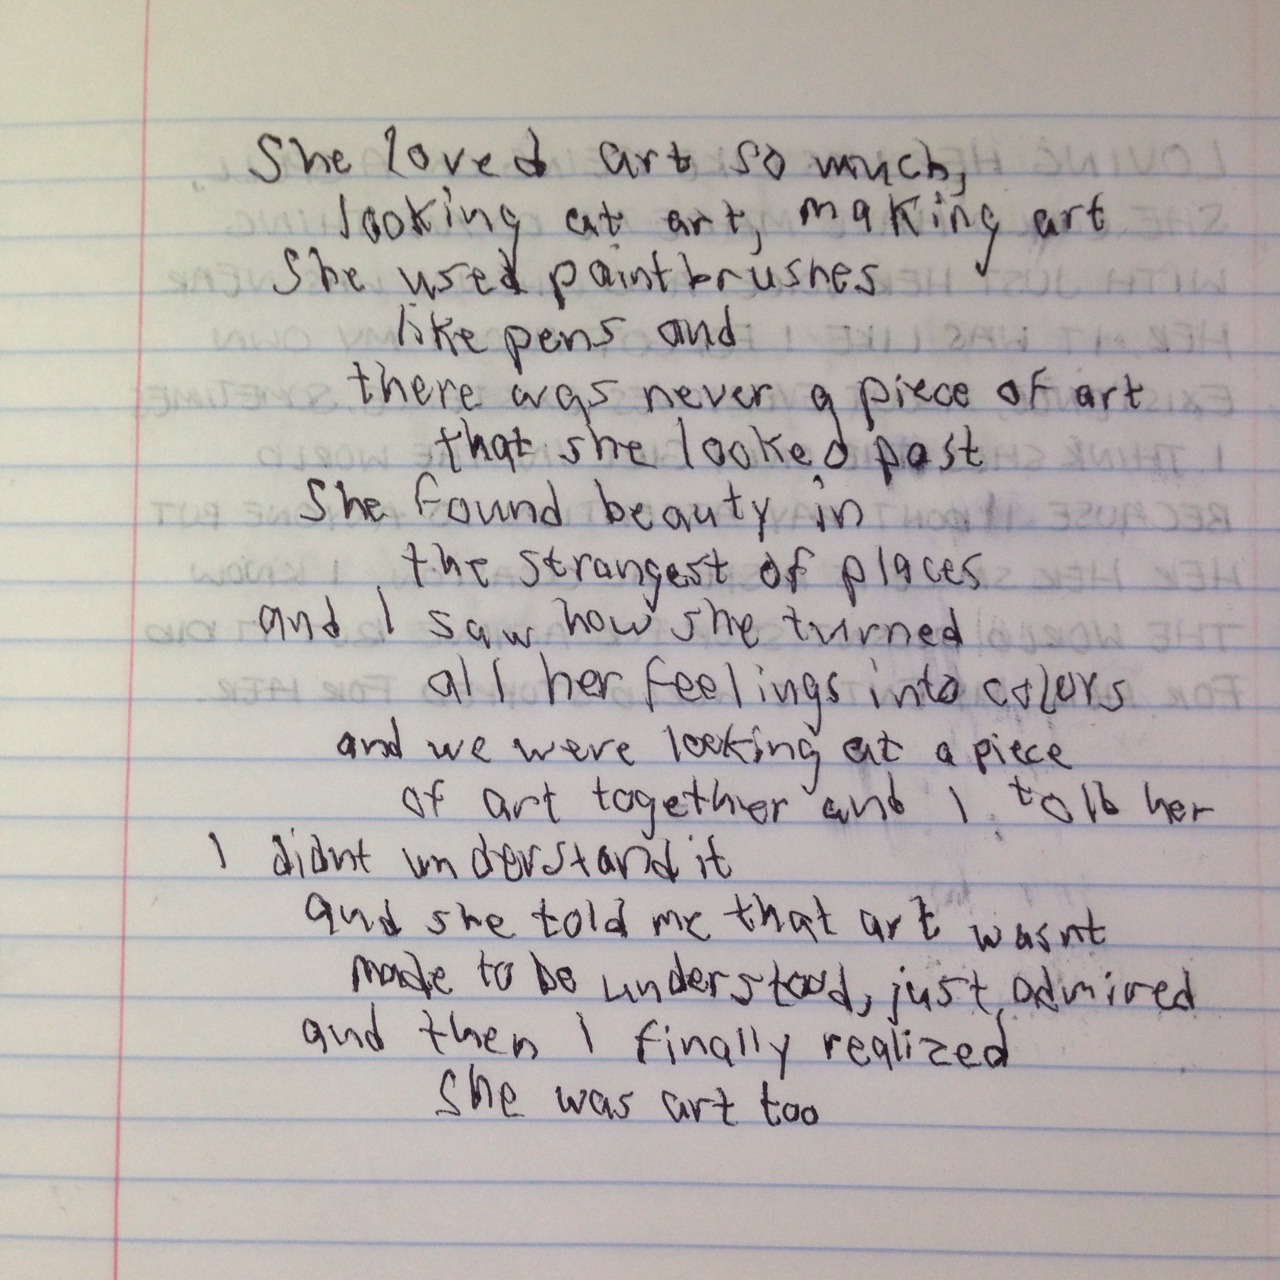 She loved art so much,
looking at art, making art
She used paintbrushes
like pens and
there was never a piece of art
that she looked past
She found beauty in
the strangest of places
and I saw how she turned
all her feelings into colors
and we were looking at a piece
of art together and I told her
I didnt understand it
and she told me that art wasnt
made to be understood, just admired
and then I finally realized
she was art too